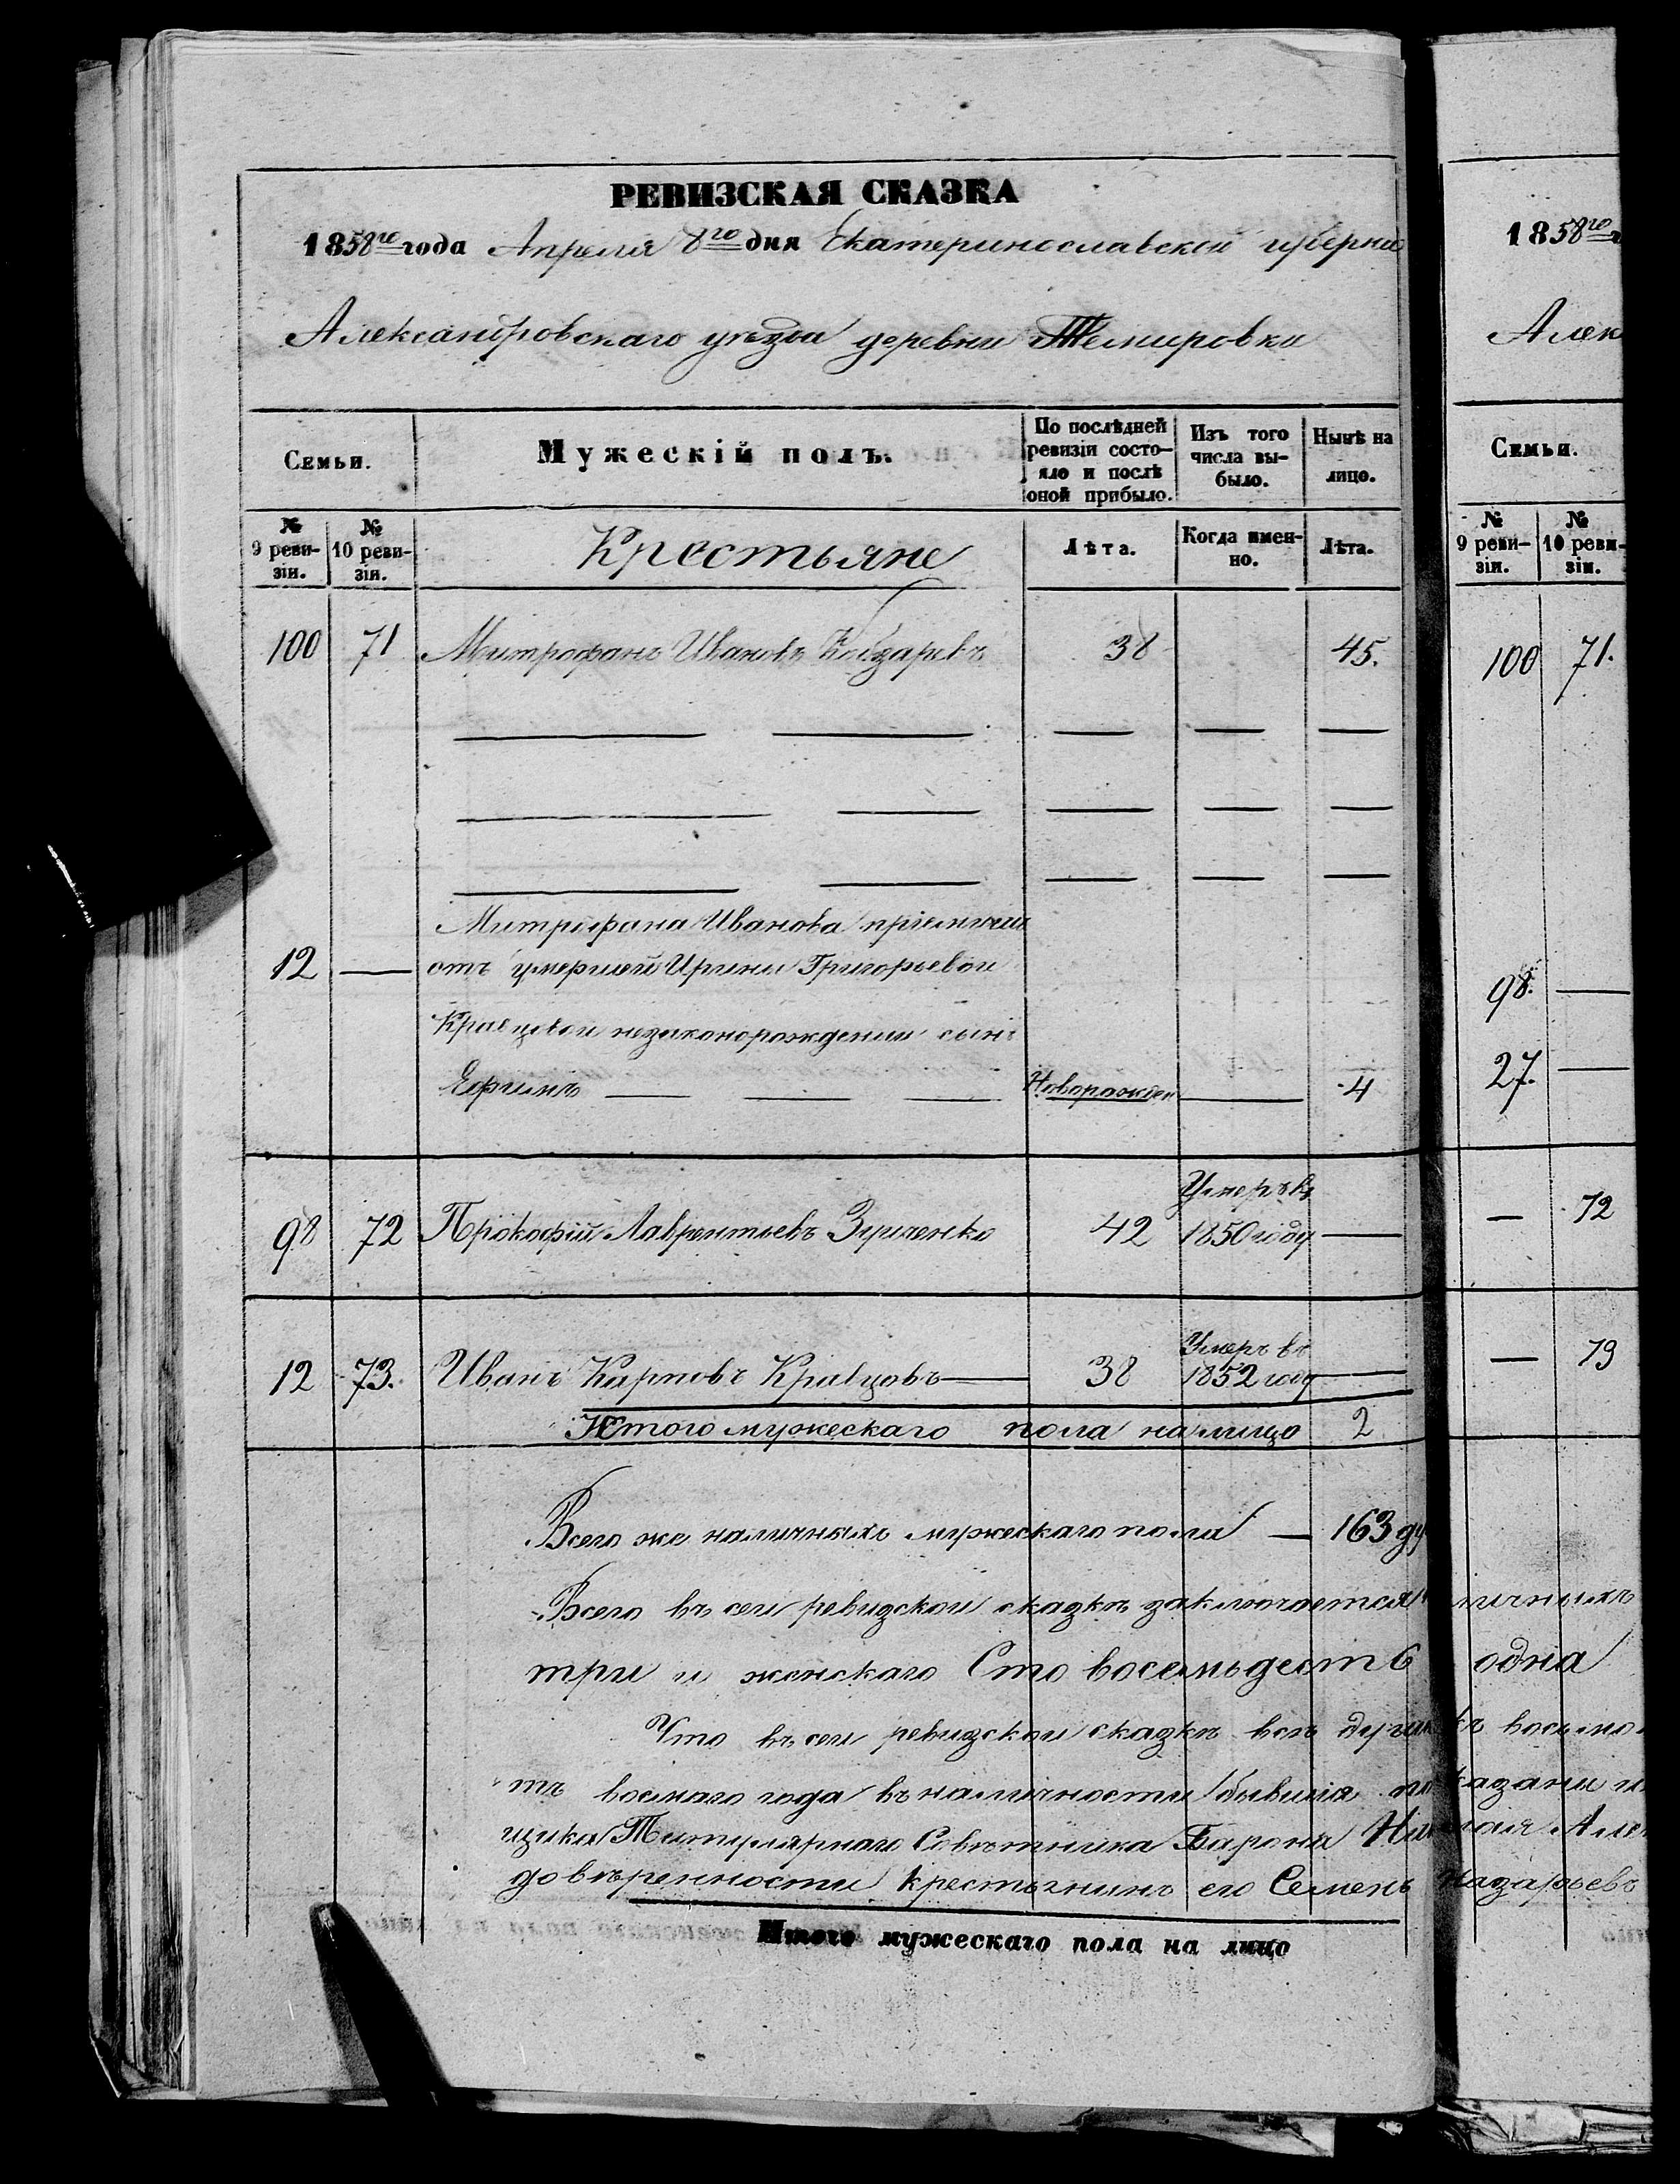 РЕВИЗСКАЯ СКАЗКА
1858го года Апреля 8го дня Екатеринославской губернии
Александровскаго уѣзда деревни Темировки
Семьи.
Мужескій полъ.
По послѣдней ревизіи состо-
яло и послѣ оной прибыло.
Изъ того числа вы-
было.
Нынѣ на лицо.
№ 9 реви-
зіи.
№ 10 реви-
зіи.
Крестьяне
Лѣта.
Когда имен-
но.
Лѣта.
100 71 Митрофанъ Ивановъ Кобзаревъ 38 45.
Митрофана Иванова пріемышъ
12 — отъ умершей Ирины Григорьевой
Кравцовой незаконорожденни сынъ
Ефимъ — — — Новорожден — 4
98 72 Прокофій Лаврентьевъ Зинченко 42 Умеръ въ 1850 году —
12 73. Иванъ Карповъ Кравцовъ — 38 Умеръ въ 1852 году —
Итого мужескаго пола налицо 2
Всего же наличныхъ мужескаго пола — 163 ду
Всего въ сей ревизской сказкѣ заключается
три и женскаго Сто восемьдесятъ
Что въ сей ревизской сказкѣ всѣ души
тъ восмаго года въ наличности бывшія по
щика Титулярнаго Совѣтника Барона
довѣренности крестьянинъ его Семенъ
Итого мужескаго пола на лицо
1858го
Алек
Семьи.
№ 9 реви-
зіи.
№ 10 реви-
зіи.
100 71.
98. —
27. —
— 72
— 73
личныхъ
одна
казаны
Назарьевъ